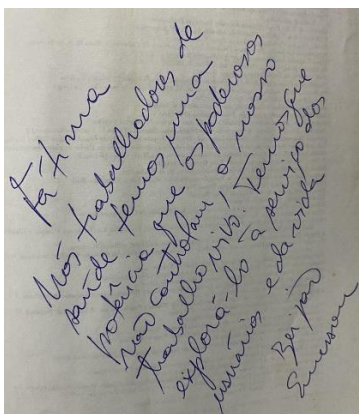 Fátima
Nós trabalhadores de
saúde temos uma
potência que os poderosos
não controlam, o nosso
trabalho vivo! Temos que
explorá-lo à serviço dos
usuários e da vida
Beijão
Emerson